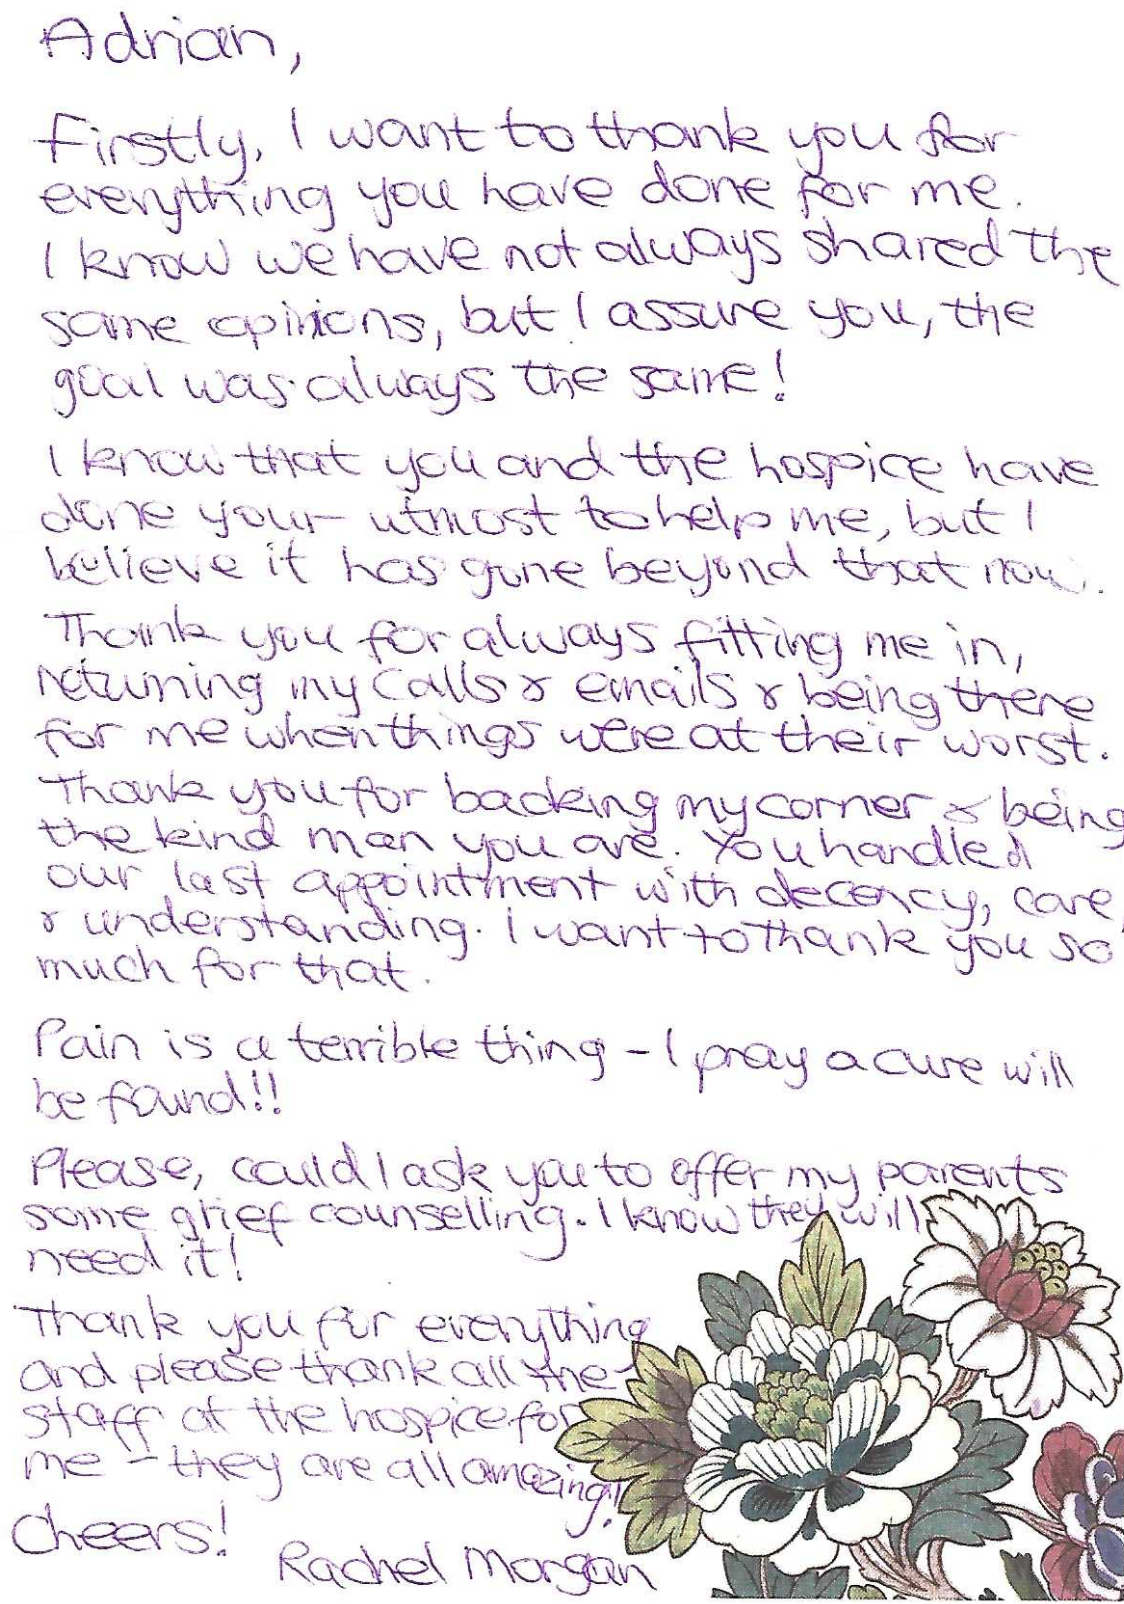 Adrian,
Firstly, I want to thank you for
everything you have done for me.
I know we have not always shared the
same opinions, but I assure you, the
goal was always the same!
I know that you and the hospice have
done your utmost to help me, but I
believe it has gone beyond that now.
Thank you for always fitting me in,
returning my calls & emails & being there
for me when things were at their worst.
Thank you for backing my corner & being
the kind man you are. You handled
our last appointment with decency, care,
& understanding. I want to thank you so
much for that.
Pain is a terrible thing - I pray a cure will
be found!!
Please, could I ask you to offer my parents
some grief counselling. I know they will
need it!
Thank you for everything
and please thank all the
staff at the hospice for
me - they are all amazing!
Cheers!
Rachel Morgan